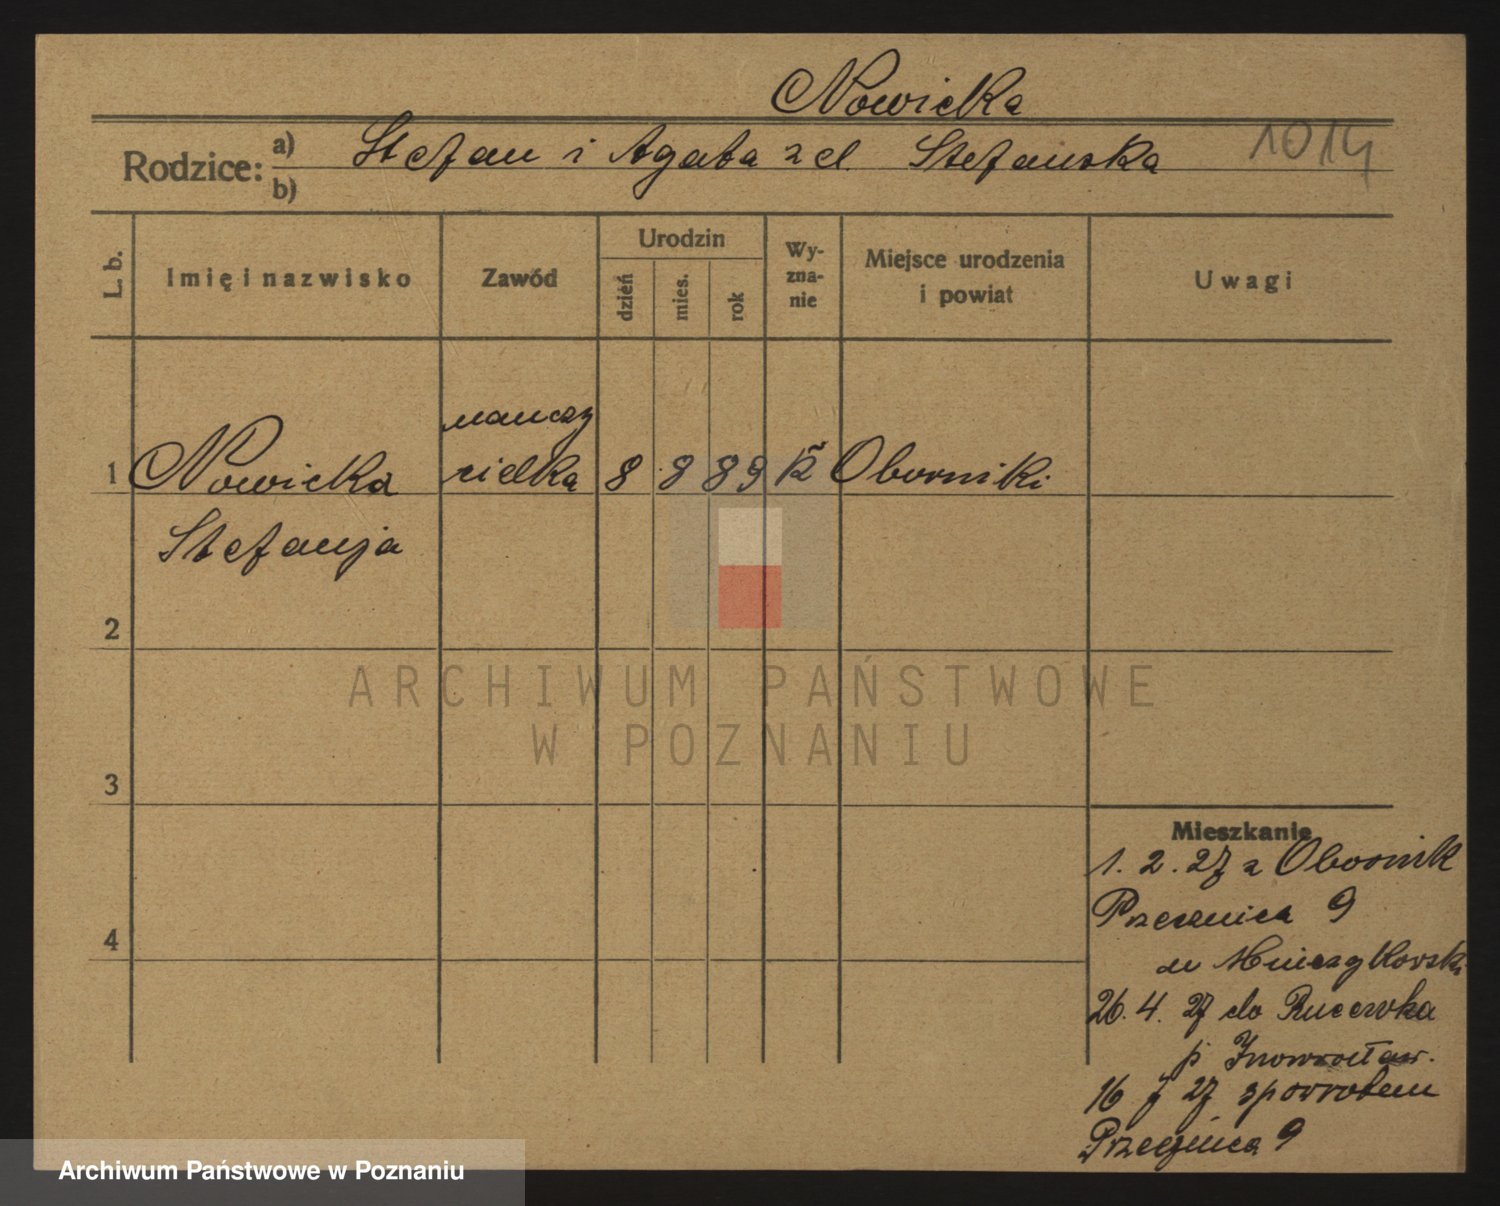 Nowicka
Rodzice: a) Stefan i Agata z d. Stefańska 1014
b)
L. b.
Imię i nazwisko
Zawód
Urodzin
dzień
mies.
rok
Wy-
zna-
nie
Miejsce urodzenia
i powiat
Uwagi
nauczy
1 Nowicka cielka 8 8 89 k Oborniki
Stefanja
2
ARCHIWUM PAŃSTWOWE
W POZNANIU
3
Mieszkanie
1. 2. 27 z Obornik
Przecznica 9
4
26. 4. 27 do Rucewka
p Inowrocław.
16 7 27 spowrotem
Przecznica 9
Archiwum Państwowe w Poznaniu